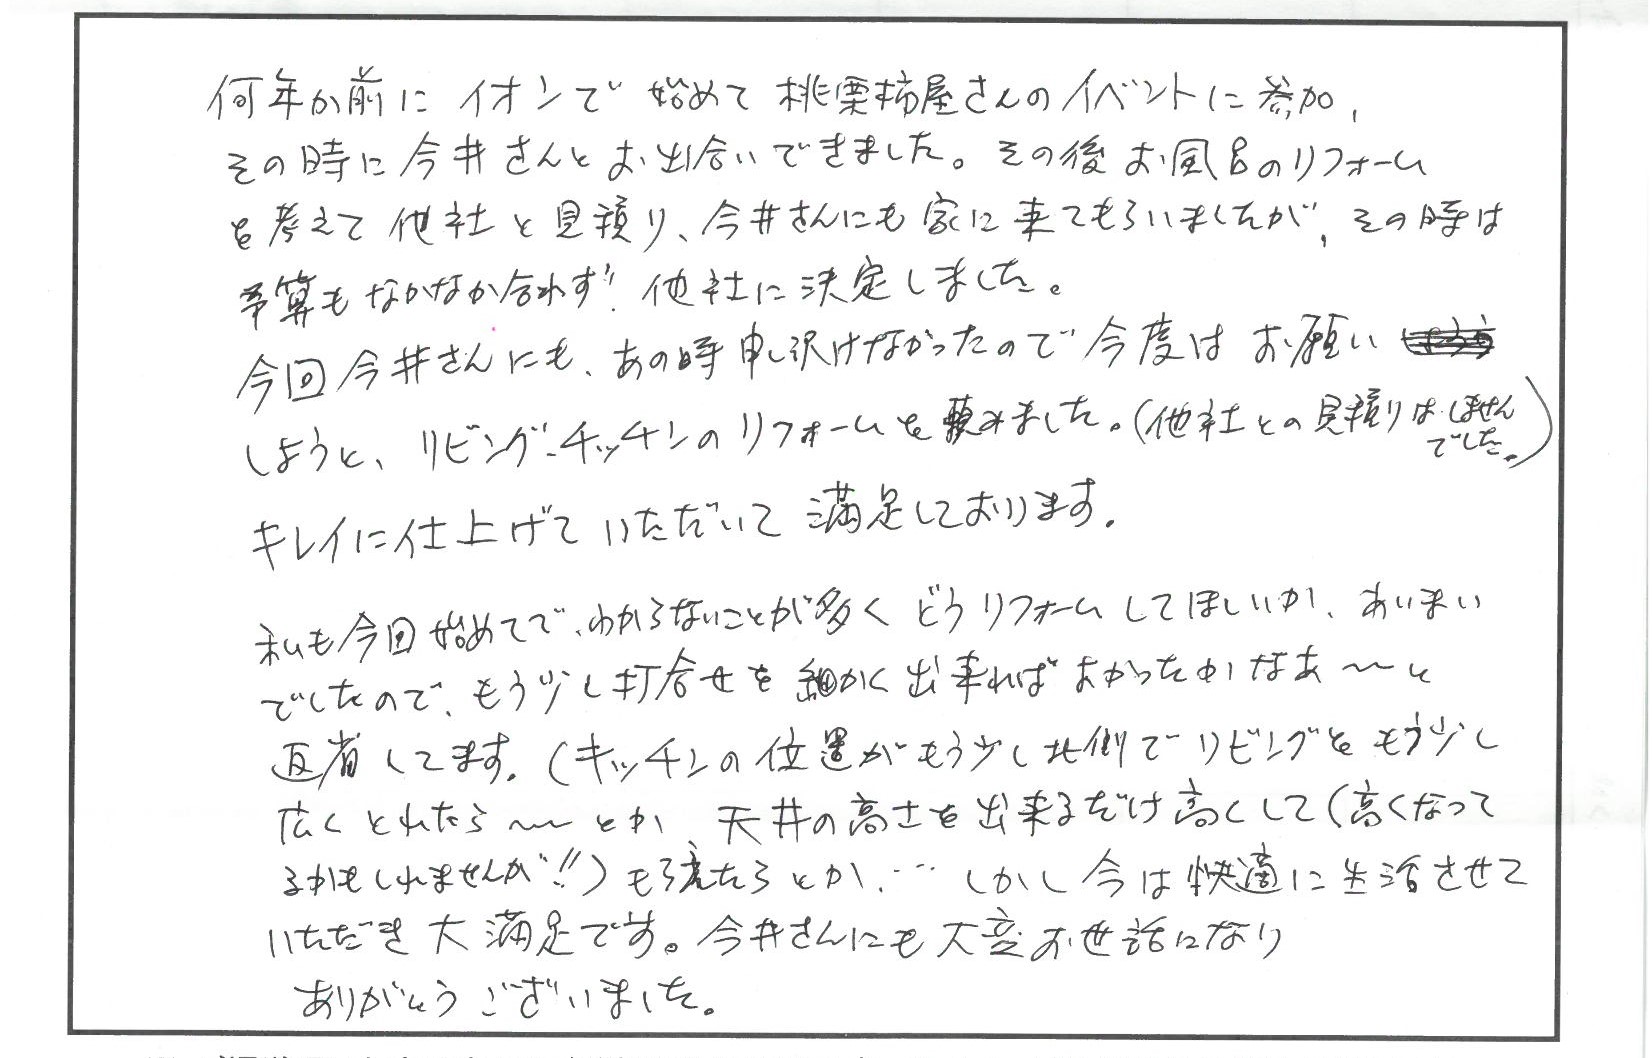 何年か前に イオンで 始めて 桃栗柿屋さんのイベントに参加,
その時に今井さんとお出合いできました。その後お風呂のリフォーム
を考えて他社と見積り、今井さんにも家に来てもらいましたが、その時は
予算もなかなか合わず!! 他社に決定しました。
今回今井さんにも、あの時申し訳けなかったので今度はお願い
しようと、リビング・キッチンのリフォームを頼みました。(他社との見積りはしません
でした。)
キレイに仕上げていただいて満足しております。
私も今回始めてで、わからないことが多くどうリフォームしてほしいか、あいまい
でしたので、もう少し打合せを細かく出来ればよかったかなあ〜〜と
反省してます。(キッチンの位置がもう少し北側でリビングをもう少し
広くとれたら〜〜とか、天井の高さを出来るだけ高くして(高くなって
るかもしれませんが!!)もらえたらとか、… しかし今は快適に生活させて
いただき大満足です。今井さんにも大変お世話になり
ありがとうございました。